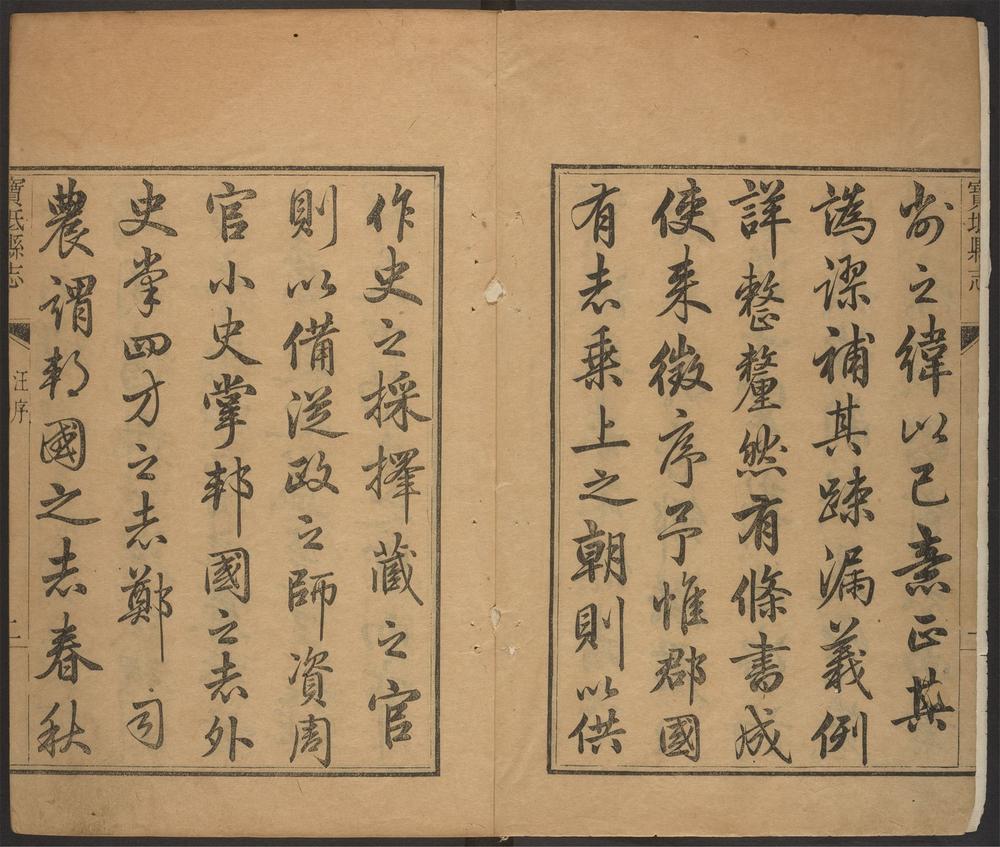 寶坻縣志
之緯以己意正其
譌謬補其踈漏義例
詳整釐然有條書成
使来徵序予惟郡國
有志乗上之朝則以供
作史之採擇藏之官
則以備從政之師資周
官小史掌邦國之志外
史掌四方之志鄭司
農謂邦國之志春秋
寶坻縣志
汪序
二